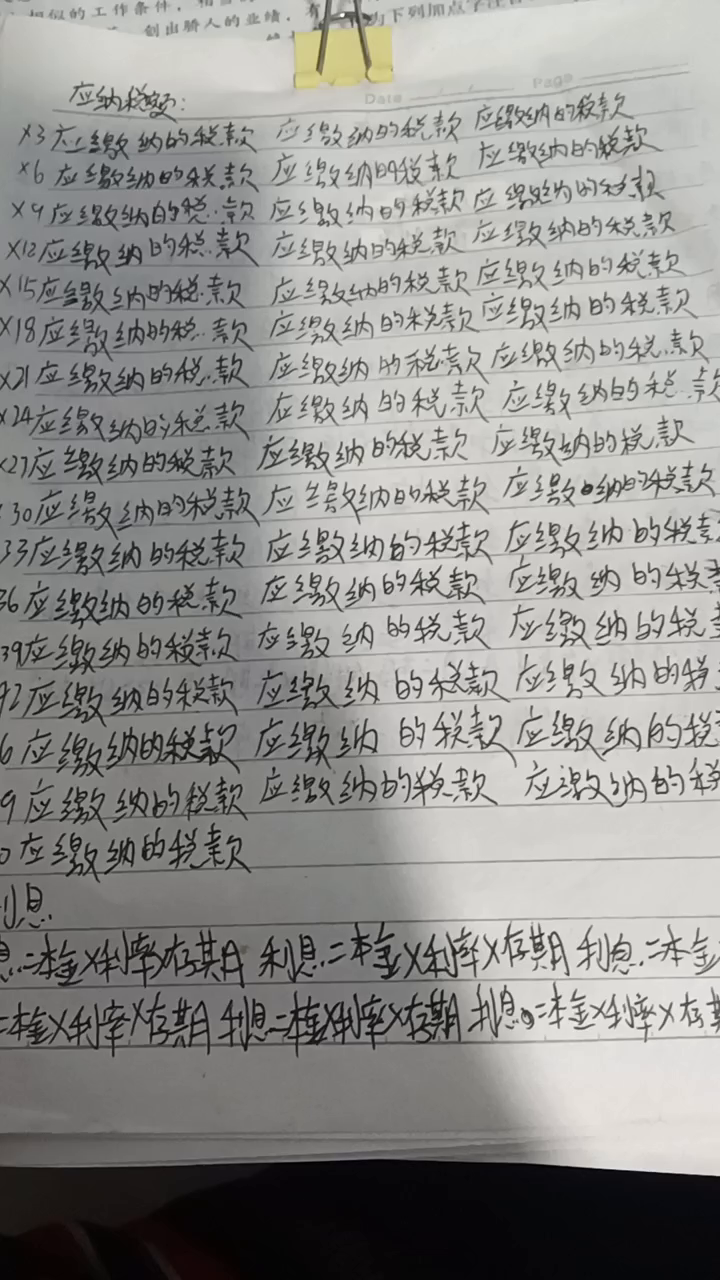 相似的工作条件，
创出骄人的业绩，有
为下列加点字注音
Date Page
应纳税额：
×3应缴纳的税款 应缴纳的税款 应缴纳的税款
×6应缴纳的税款 应缴纳的税款 应缴纳的税款
×9应缴纳的税款 应缴纳的税款 应缴纳的税款
×12应缴纳的税款 应缴纳的税款 应缴纳的税款
×15应缴纳的税款 应缴纳的税款 应缴纳的税款
×18应缴纳的税款 应缴纳的税款 应缴纳的税款
×21应缴纳的税款 应缴纳的税款 应缴纳的税款
×24应缴纳的税款 应缴纳的税款 应缴纳的税款
×27应缴纳的税款 应缴纳的税款 应缴纳的税款
30应缴纳的税款 应缴纳的税款 应缴纳的税款
33应缴纳的税款 应缴纳的税款 应缴纳的税款
36应缴纳的税款 应缴纳的税款 应缴纳的税款
39应缴纳的税款 应缴纳的税款 应缴纳的税
42应缴纳的税款 应缴纳的税款 应缴纳的税
6应缴纳的税款 应缴纳的税款 应缴纳的税
9应缴纳的税款 应缴纳的税款 应缴纳的税
0应缴纳的税款
利息
息=本金×利率×存期 利息=本金×利率×存期 利息=本金
=本金×利率×存期 利息=本金×利率×存期 利息=本金×利率×存期